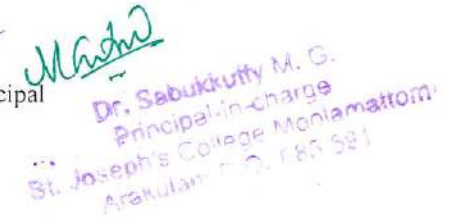 cipal
Dr. Sabukkutty M. G.
Principal-in-charge
St. Joseph's College Moolamattom
Arakulam P. O. 685 591